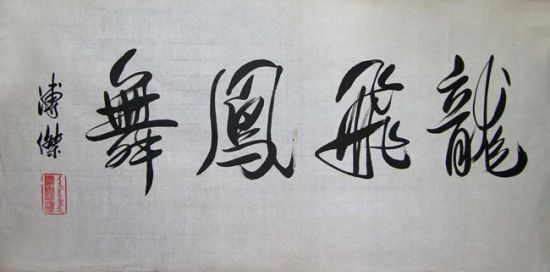 龍飛鳳舞
溥傑